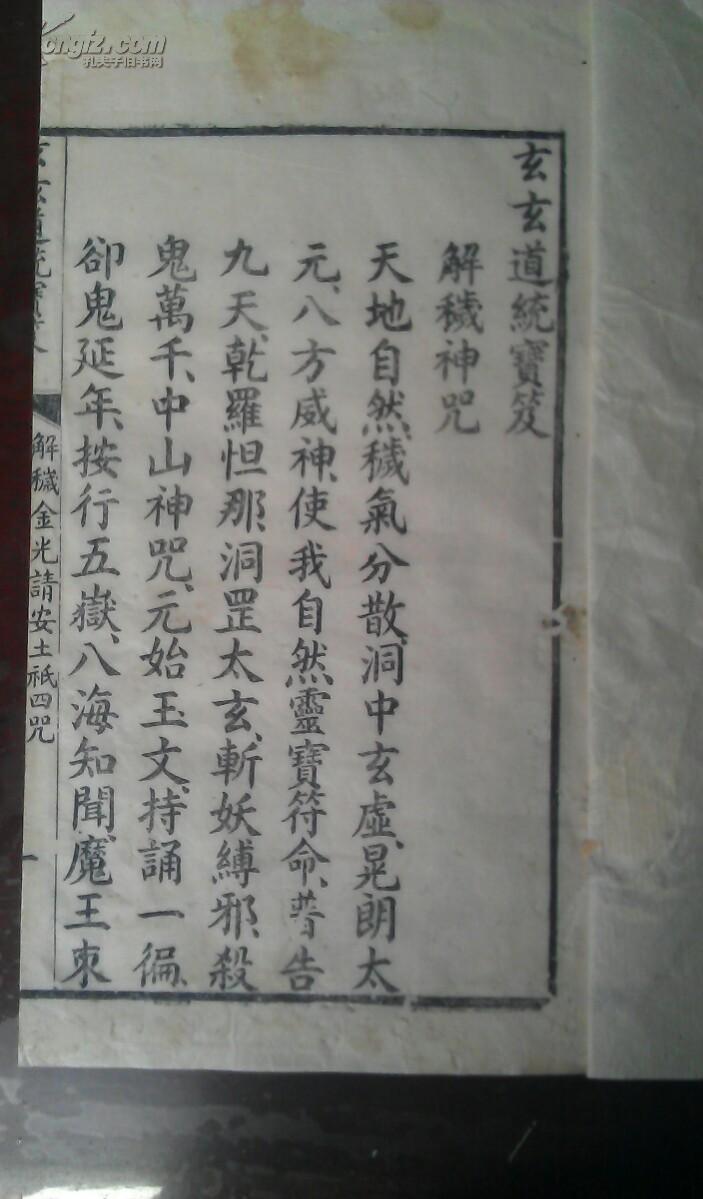 玄玄道統寶笈
解穢神咒
天地自然、穢氣分散、洞中玄虛、晃朗太
元、八方威神、使我自然、靈寶符命、普告
九天、乾羅怛那、洞罡太玄、斬妖縛邪、殺
鬼萬千、中山神咒、元始玉文、持誦一徧、
卻鬼延年、按行五嶽、八海知聞、魔王束
玄玄道統寶笈
解穢金光請安土祇四咒
一
kongfz.com
孔夫子旧书网